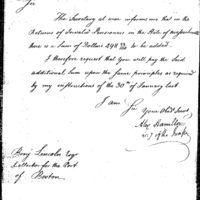 Sir
The Secretary at war informs me that in the
Returns of Invalid Pensioners in the State of Massachusetts
there is a Sum of Dollars 298 to be added.
I therefore request that you will pay the said
additional Sum upon the same principles as required
by my instructions of the 30th of January last.
I am Sir
Your Obed Servt
Alex Hamilton
Benj Lincoln Esqr
Collector for the Port
of Boston